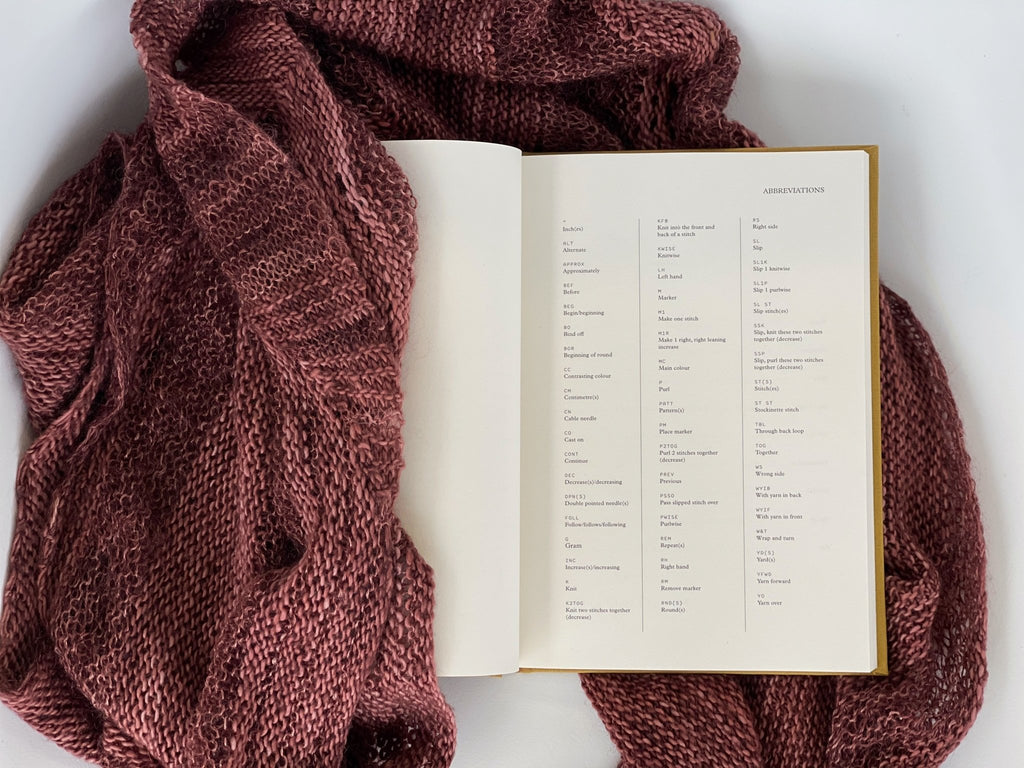 ABBREVIATIONS
"
Inch(es)
ALT
Alternate
APPROX
Approximately
BEF
Before
BEG
Begin/beginning
BO
Bind off
BOR
Beginning of round
CC
Contrasting colour
CM
Centimetre(s)
CN
Cable needle
CO
Cast on
CONT
Continue
DEC
Decrease(s)/decreasing
DPN(S)
Double pointed needle(s)
FOLL
Follow/follows/following
G
Gram
INC
Increase(s)/increasing
K
Knit
K2TOG
Knit two stitches together
(decrease)
KFB
Knit into the front and
back of a stitch
KWISE
Knitwise
LH
Left hand
M
Marker
M1
Make one stitch
M1R
Make 1 right, right leaning
increase
MC
Main colour
P
Purl
PATT
Pattern(s)
PM
Place marker
P2TOG
Purl 2 stitches together
(decrease)
PREV
Previous
PSSO
Pass slipped stitch over
PWISE
Purlwise
REM
Repeat(s)
RH
Right hand
RM
Remove marker
RND(S)
Round(s)
RS
Right side
SL
Slip
SL1K
Slip 1 knitwise
SL1P
Slip 1 purlwise
SL ST
Slip stitch(es)
SSK
Slip, knit these two stitches
together (decrease)
SSP
Slip, purl these two stitches
together (decrease)
ST(S)
Stitch(es)
ST ST
Stockinette stitch
TBL
Through back loop
TOG
Together
WS
Wrong side
WYIB
With yarn in back
WYIF
With yarn in front
W&T
Wrap and turn
YD(S)
Yard(s)
YFWD
Yarn forward
YO
Yarn over